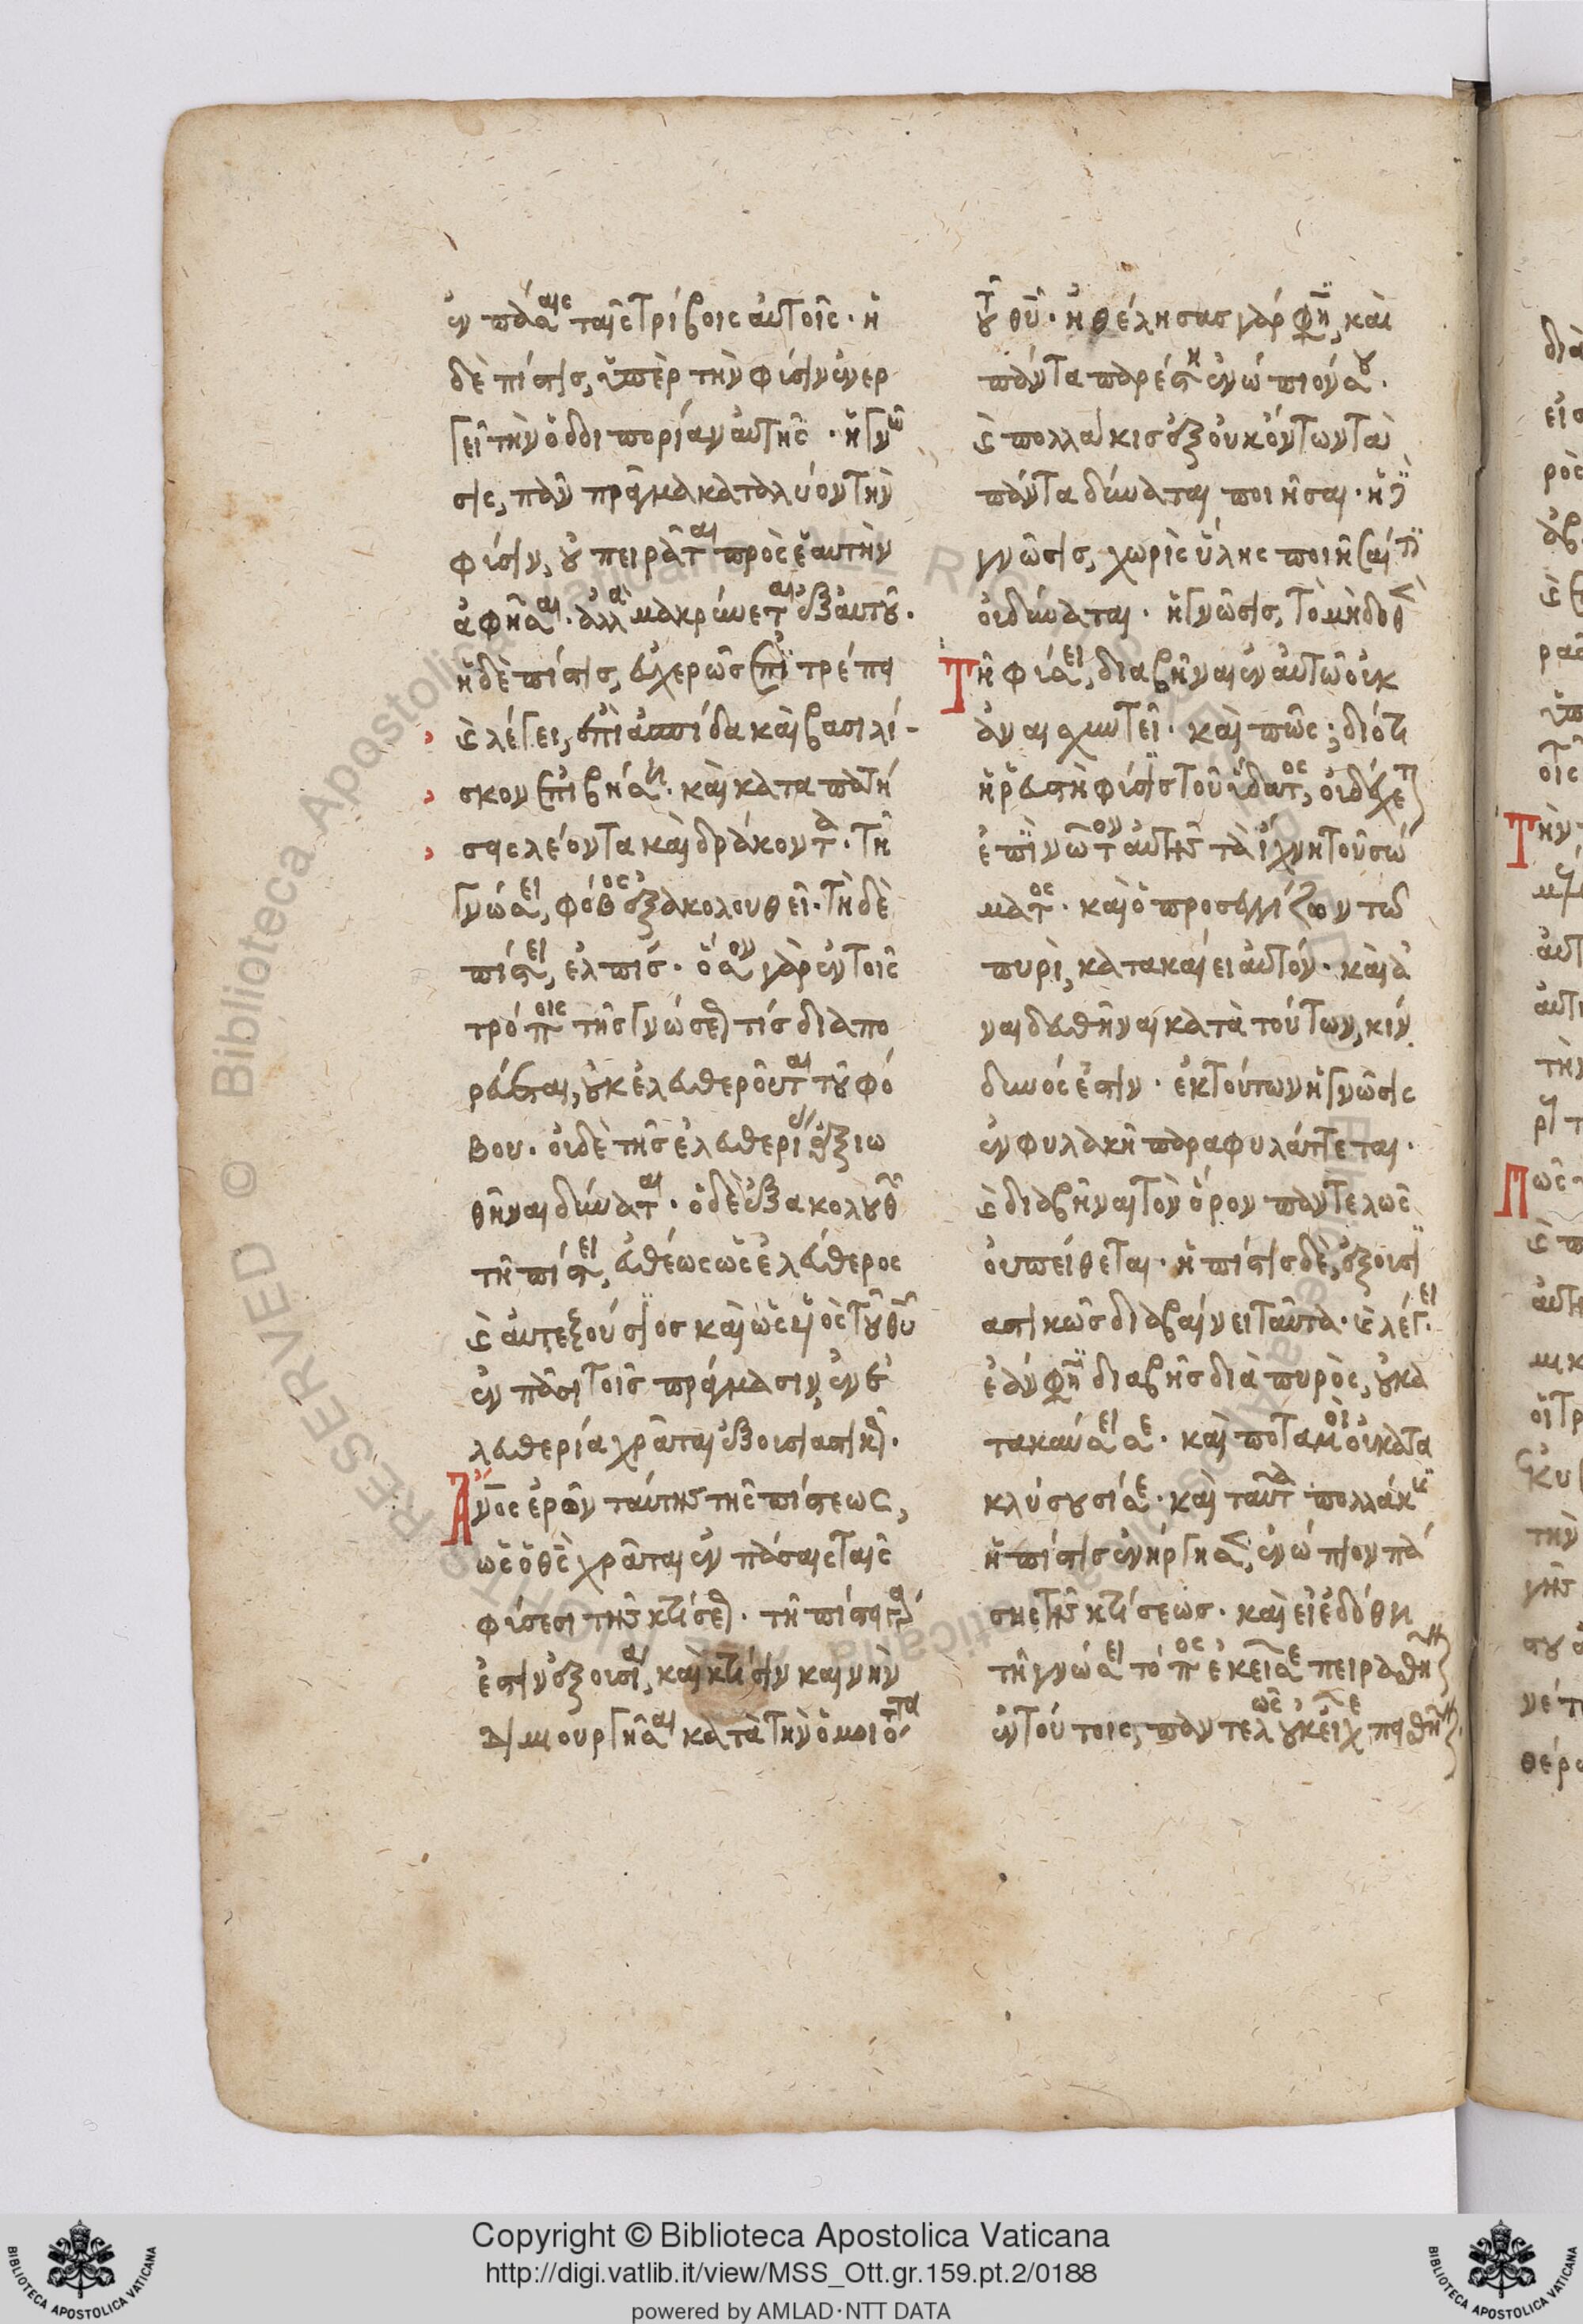 ἐν πάσαις ταῖς τρίβοις αὐτοῖς· ἡ
δὲ πίστις, ὑπὲρ τὴν φύσιν ἐνερ
γεῖ τὴν ὁδοιπορίαν αὐτῆς· ἡ γνῶ
σις, πᾶν πρᾶγμα καταλύον τὴν
φύσιν, οὐ πειρᾶται πρὸς ἑαυτὴν
ἀφῆσαι· ἀλλὰ μακρύνεται ἐξ αὐτοῦ·
ἡ δὲ πίστις, εὐχερῶς ἐπιτρέπει
καὶ λέγει, ἐπὶ ἀσπίδα καὶ βασιλί-
σκον ἐπιβήσῃ· καὶ καταπατή
σεις λέοντα καὶ δράκοντα· τῇ
γνώσει, φόβος ἐξακολουθεῖ· τῇ δὲ
πίστει, ἐλπίς· ὅσον γὰρ ἐν τοῖς
τρόποις τῆς γνώσεως τίς διαπο
ρεύεται, οὐκ ἐλευθεροῦται τοῦ φό
βου· οὐδὲ τῆς ἐλευθερίας ἀξιω
θῆναι δύναται· ὁ δὲ ἐξακολουθῶν
τῇ πίστει, εὐθέως ὡς ἐλεύθερος
καὶ αὐτεξούσιος καὶ ὡς υἱὸς τοῦ θῦ
ἐν πᾶσι τοῖς πράγμασιν, ἐν ἐ
λευθερίᾳ χρᾶται ἐξουσιαστικῶς·
Ἀνος ἐρῶν ταύτης τῆς πίστεως,
ὡς ὁ θς χρᾶται ἐν πάσαις ταῖς
φύσεσι τῆς κτίσεως· τῇ πίστει γάρ
ἐστιν ἐξουσία, καὶ κτίσιν καινὴν
δημιουργῆσαι κατὰ τὴν ὁμοιότητα
τοῦ θῦ· ἠθέλησας γάρ φησι, καὶ
πάντα παρέστη ἐνώπιόν σου·
καὶ πολλάκις ἐξ οὐκ ὄντων τὰ
πάντα δύναται ποιῆσαι· ἡ δὲ
γνῶσις, χωρὶς ὕλης ποιῆσαί τι
οὐ δύναται· ἡ γνῶσις, τὸ μὴ δοθὲν
Τῇ φύσει, διαβῆναι ἐν αὐτῷ οὐκ
ἀναισχυντεῖ· καὶ πῶς; διότι
ἡ ῥευστὴ φύσις τοῦ ὕδατος, οὐ δέχεται
ἐπὶ νῶτον αὐτῆς τὰ ἴχνη τοῦ σώ
ματος· καὶ ὁ προσεγγίζων τῷ
πυρὶ, κατακαίει αὐτόν· καὶ ἀ
ναιδευθῆναι κατὰ τούτων, κίν
δυνός ἐστιν· ἐκ τούτων ἡ γνῶσις
ἐν φυλακῇ παραφυλάττεται·
καὶ διαβῆναι τὸν ὅρον παντελῶς
οὐ πείθεται· ἡ πίστις δὲ, ἐξουσι
αστικῶς διαβαίνει ταῦτα· καὶ λέγει·
ἐάν φησι διαβῇς διὰ πυρὸς, οὐ κα
τακαύσει σε· καὶ ποταμοὶ οὐ κατα
κλύσουσί σε· καὶ ταῦτα πολλάκις
ἡ πίστις ἐνήργησεν, ἐνώπιον πά
σης τῆς κτίσεως· καὶ εἰ ἐδόθη
τῇ γνώσει τόπος ἐκεῖσε πειραθῆναι
ἐν τούτοις, παντελῶς οὐκ εἶχε πεισθῆναι·
Copyright © Biblioteca Apostolica Vaticana
http://digi.vatlib.it/view/MSS_Ott.gr.159.pt.2/0188
powered by AMLAD·NTT DATA